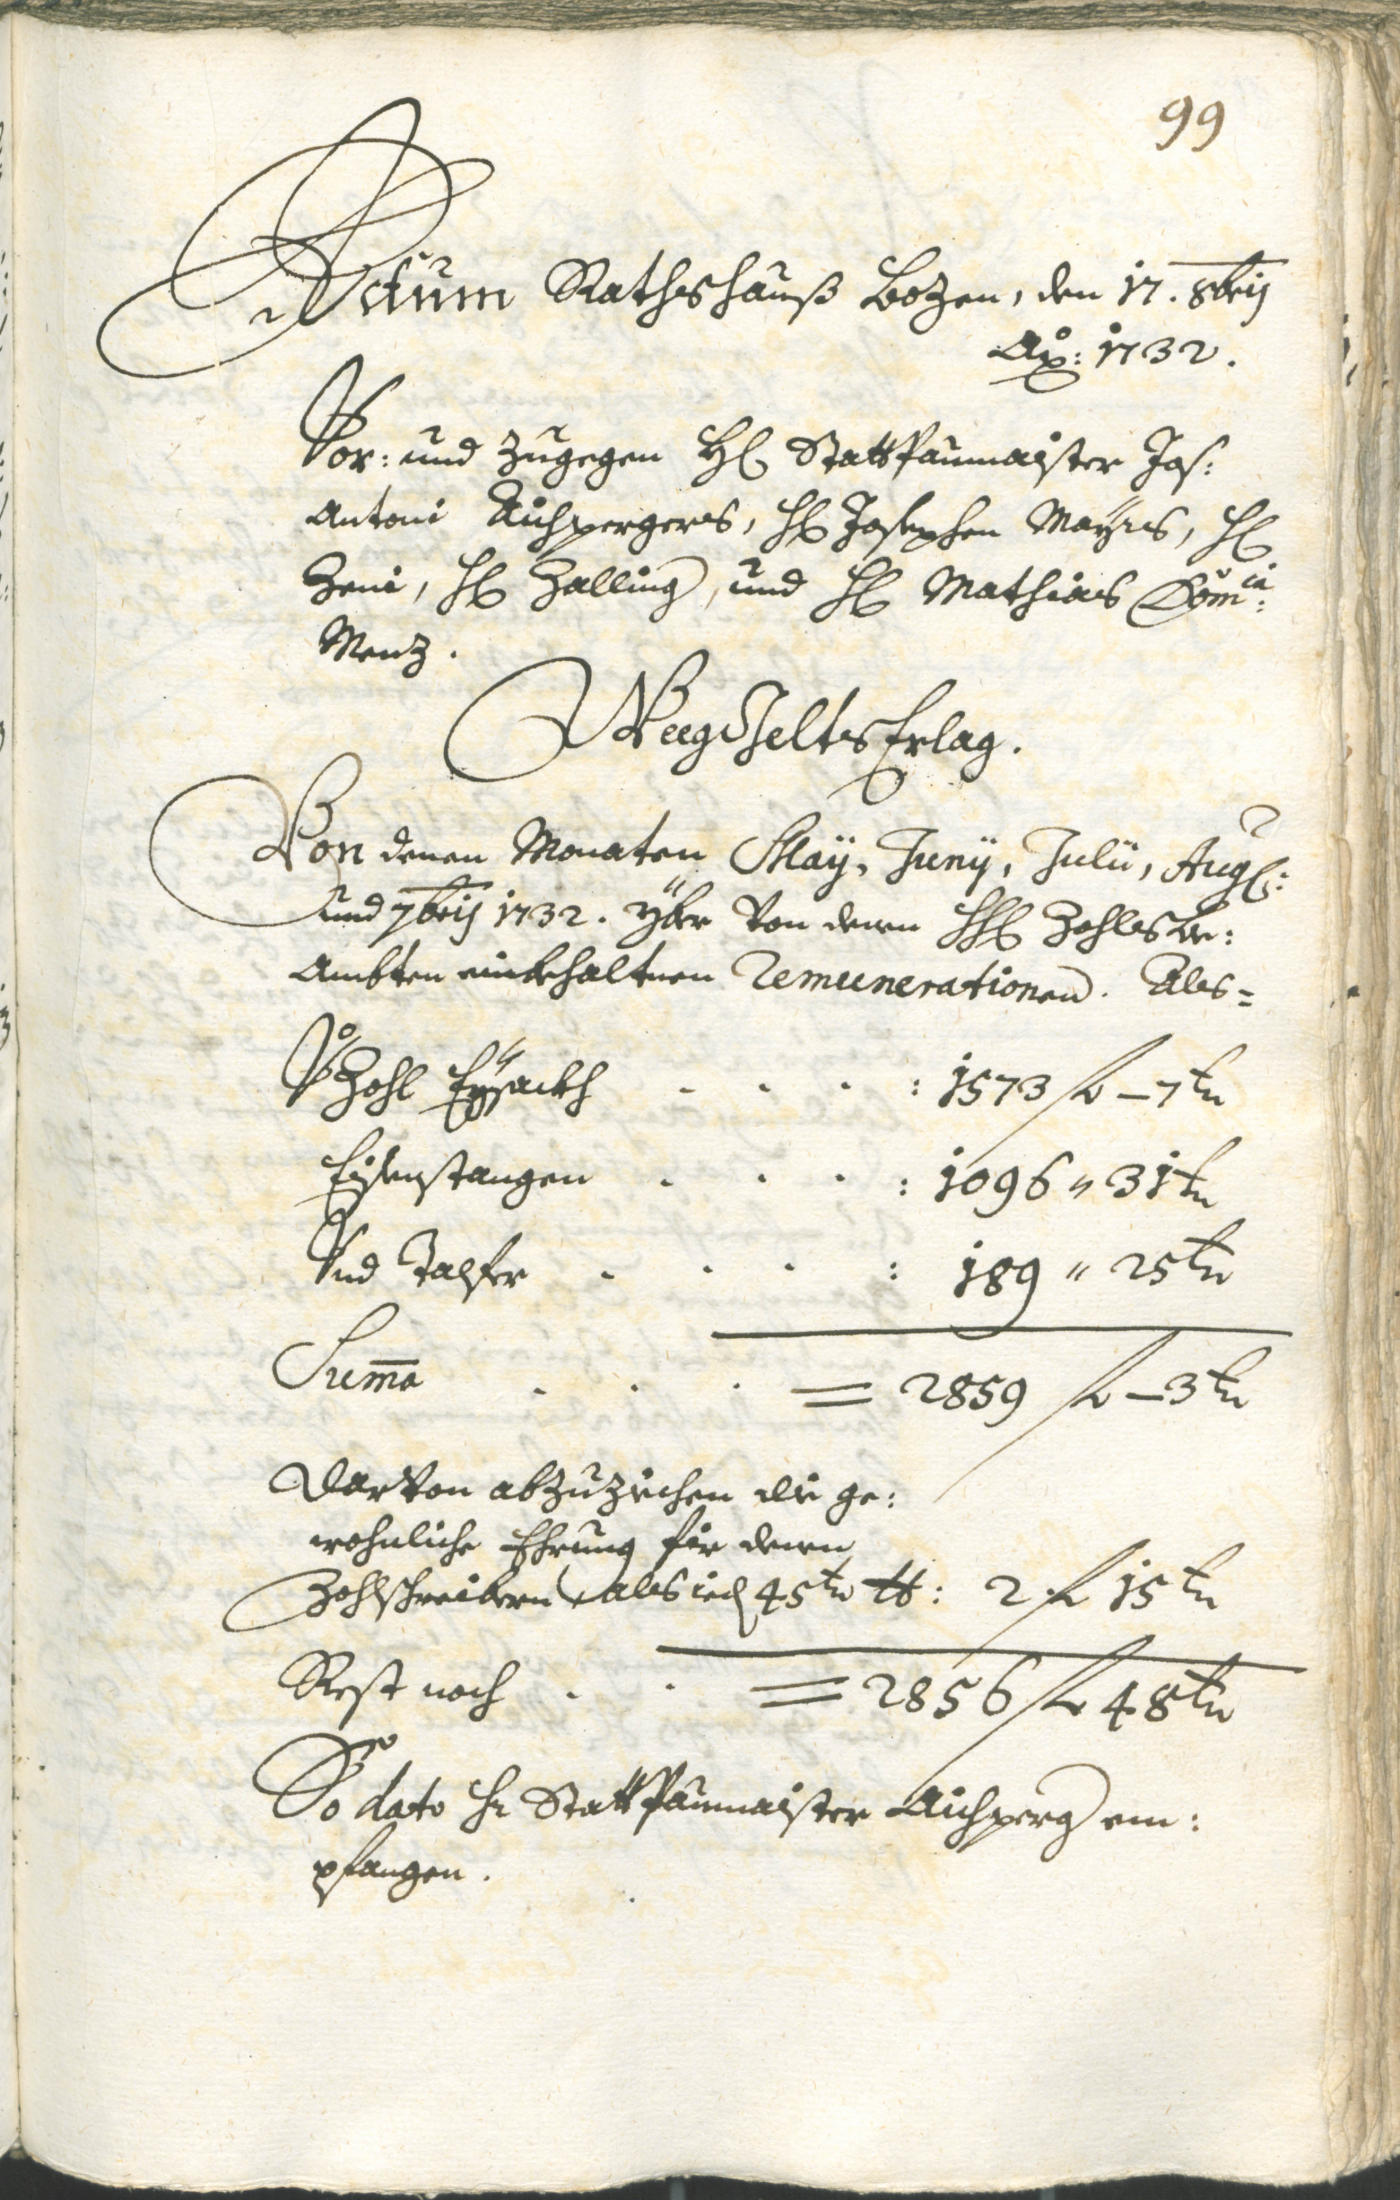 99
Actum Rathshauß Bozen, den 17. 8bris
Aõ: 1732.
Vor: und zugegen H. Statt Paumaister Jos:
Antoni Aichpergers, H. Josephen Mayrs, H.
Zeni, H. Zalling, und H. Mathias
Menz.
Weeg Gelts Erlag.
Von denen Monaten May, Juny, July, Aug:
und 7bris 1732. yber von denen HH. Zohlsbe:
Ambten einbehaltnen Remunerationen. Als=
Zohl Eysackh . . . : 1573 f – 7 kr
Eysenstangen . . . : 1096 " 31 kr
Und Talfer . . . : 189 " 25 kr
Suma . . . = 2859 f – 3 kr
Darvon abzuzichen die ge:
wohnliche Ehrung fir denen
Zohlschreibern als ied 45 kr tt: 2 f 15 kr
Rest noch . . = 2856 f 48 kr
So dato Hr Statt Paumaister Aichperg em:
pfangen.